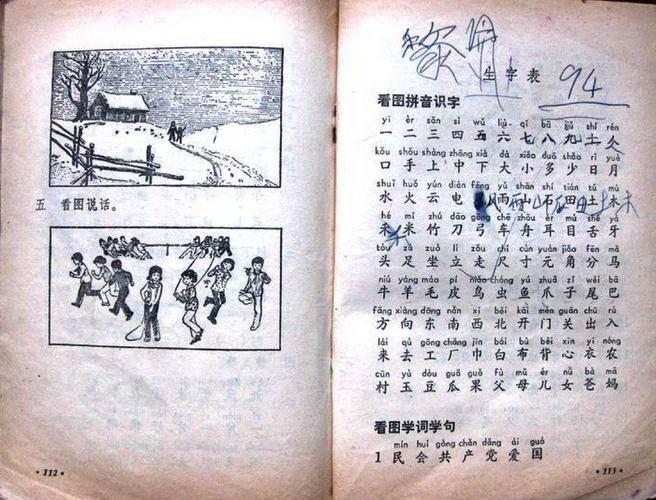 五 看图说话。
·112·
94
生字表
看图拼音识字
yī èr sān sì wǔ liù qī bā jiǔ shí rén
一 二 三 四 五 六 七 八 九 十 人
kǒu shǒu shàng zhōng xià dà xiǎo duō shǎo rì yuè
口 手 上 中 下 大 小 多 少 日 月
shuǐ huǒ yún diàn fēng yǔ shān shí tián tǔ mù
水 火 云 电 风 雨 山 石 田 土 木
hé mǐ zhú dāo gōng chē zhōu ěr mù shé yá
禾 米 竹 刀 弓 车 舟 耳 目 舌 牙
tóu zú zuò lì zǒu chǐ cùn yuán jiǎo fēn mǎ
头 足 坐 立 走 尺 寸 元 角 分 马
niú yáng máo pí niǎo chóng yú zhuǎ zǐ wěi bā
牛 羊 毛 皮 鸟 虫 鱼 爪 子 尾 巴
fāng xiàng dōng nán xī běi kāi mén guān chū rù
方 向 东 南 西 北 开 门 关 出 入
lái qù gōng chǎng jīn bái bù bèi xīn yī nóng
来 去 工 厂 巾 白 布 背 心 衣 农
cūn yù dòu guā guǒ fù mǔ ér nǚ bà mā
村 玉 豆 瓜 果 父 母 儿 女 爸 妈
看图学词学句
mín huì gòng chǎn dǎng ài guó
1 民 会 共 产 党 爱 国
·113·